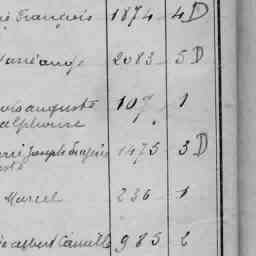 François 1874 4D
2083 5D
auguste 107 1
alphonse
Joseph Eugène 1475 3D
Marcel 236 1
albert Camille 985 2